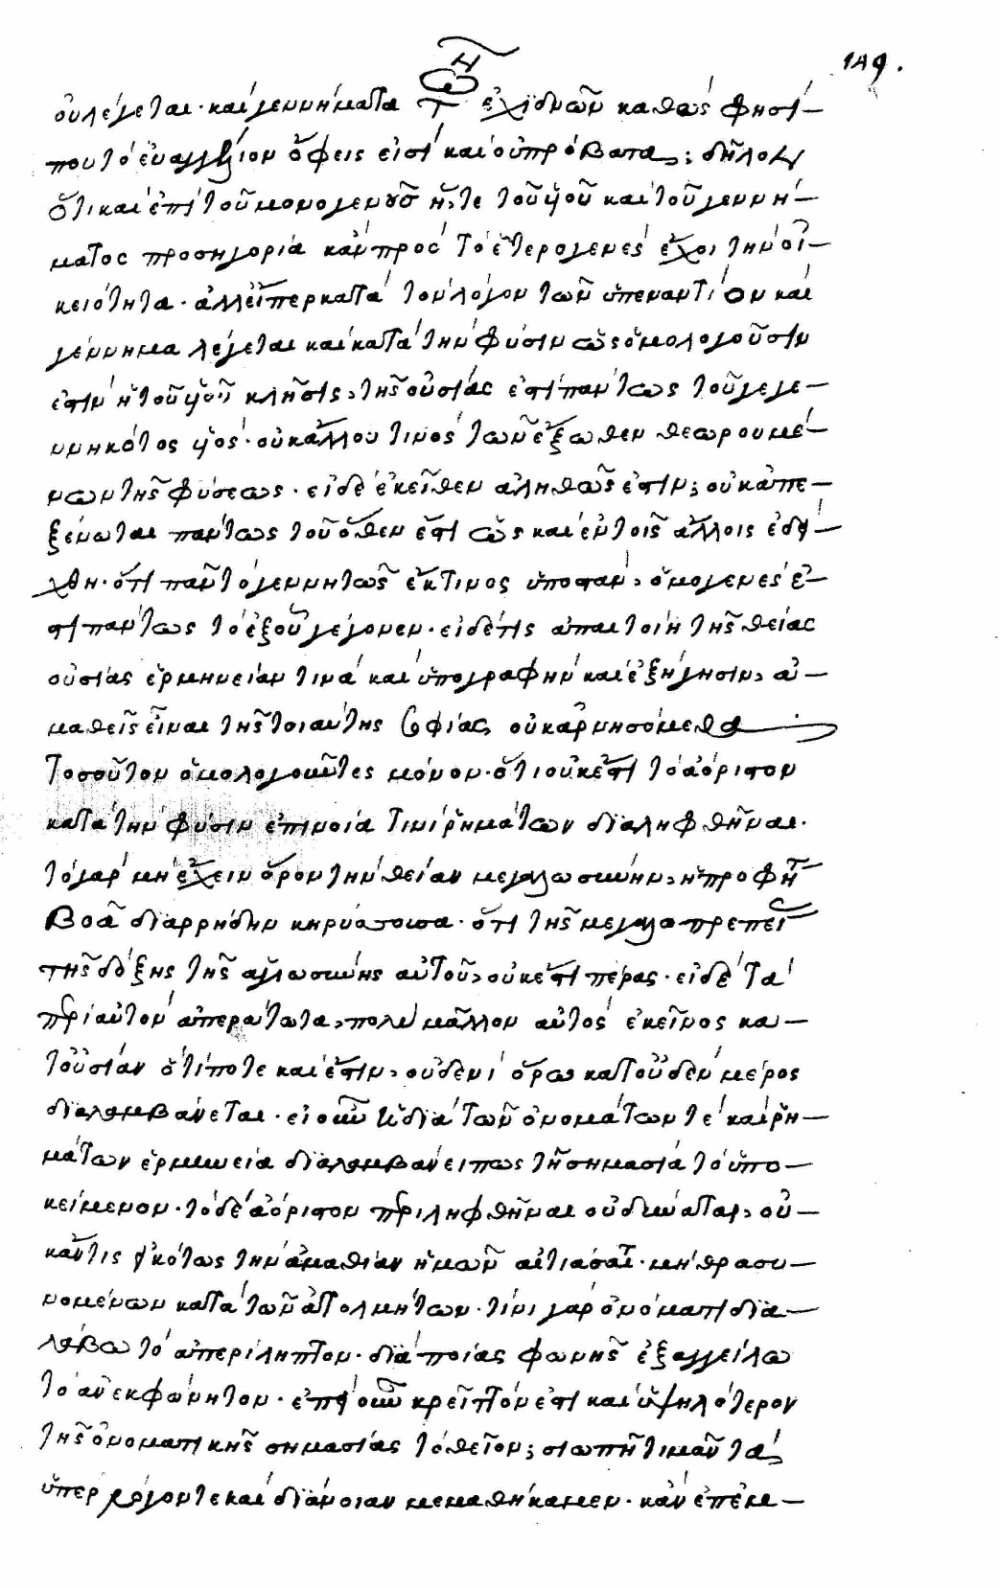 149.
οὐ λέγεται· καὶ γεννήματα ἐχιδνῶν καθώς φησί
που τὸ εὐαγγέλιον ὄφεις εἰσὶ καὶ οὐ πρόβατα; δῆλον
ὅτι καὶ ἐπὶ τοῦ μονογενοῦς ἥτε τοῦ υἱοῦ καὶ τοῦ γεννή–
ματος προσηγορία κἂν πρὸς τὸ ἑτερογενὲς ἔχοι τὴν οἰ–
κειότητα· ἀλλ' εἴπερ κατὰ τὸν λόγον τῶν ὑπεναντίον καὶ
γέννημα λέγεται καὶ κατὰ τὴν φύσιν ὡς ὁμολογοῦσιν
ἐστὶν ἡ τοῦ υἱοῦ κλῆσις, τῆς οὐσίας ἐστὶ πάντως τοῦ γεγε–
ννηκότος υἱός· οὐκ ἄλλου τινὸς τῶν ἔξωθεν θεωρουμέ–
νων τῆς φύσεως· εἰ δὲ ἐκεῖθεν ἀληθῶς ἐστιν; οὐκ ἀπε–
ξένωται πάντως τοῦ ὅθεν ἐστὶ ὡς καὶ ἐν τοῖς ἄλλοις ἐδεί–
χθη· ὅτι πᾶν τὸ γεννητῶς ἔκ τινος ὑποστὰν, ὁμογενὲς ἐ–
στὶ πάντως τὸ ἐξ οὗ γέγονεν· εἰ δέ τις ἀπαιτοίη τῆς θείας
οὐσίας ἑρμηνείαν τινὰ καὶ ὑπογραφὴν καὶ ἐξήγησιν, ἀ–
μαθεῖς εἶναι τῆς τοιαύτης σοφίας, οὐκ ἀρνησόμεθα
Τοσοῦτον ὁμολογοῦντες μόνον· ὅτι οὐκ ἔστι τὸ ἀόριστον
κατὰ τὴν φύσιν ἐπινοία τινὶ ῥημάτων διαληφθῆναι·
τὸ γὰρ μὴ ἔχειν ὅρον τὴν θείαν μεγαλωσύνην, ἡ προφητ
βοᾶ διαρρήδην κηρύσσουσα· ὅτι τῆς μεγαλοπρεπεί
τῆς δόξης τῆς ἁγιωσύνης αὐτοῦ, οὐκ ἔστι πέρας· εἰ δὲ τὰ
περὶ αὐτὸν ἀπερατωτα, πολὺ μᾶλλον αὐτὸς ἐκεῖνος κα–
τ' οὐσίαν ὅτί ποτε καὶ ἔστιν, οὐδενὶ ὅρω κατ' οὐδὲν μέρος
διαλαμβάνεται· εἰ οὖν ἡ διὰ τῶν ὀνομάτων τὲ καὶ ῥη–
μάτων ἑρμηνεία διαλαμβάνει πως τῆ σημασία τὸ ὑπο–
κείμενον· τὸ δὲ ἀόριστον περιληφθῆναι οὐ δύναται, οὐ–
κ ἄν τις εἰκότως τὴν ἀμαθίαν ἡμῶν αἰτιάσαιτ· μὴ θρασυ–
νομένων κατὰ τῶν ἀτολμήτων· τίνι γὰρ ὀνόματι δια–
λάβω τὸ ἀπερίληπτον· διὰ ποίας φωνῆς ἐξαγγείλω
τὸ ἀνεκφώνητον· ἐπεὶ οὖν κρεῖττόν ἐστι καὶ ὑψηλότερον
τῆς ὀνοματικῆς σημασίας τὸ θεῖον; σιωπῆ τιμᾶν τὰ
ὑπὲρ λόγον τε καὶ διάνοιαν μεμαθήκαμεν· κἂν ἐπέκει–